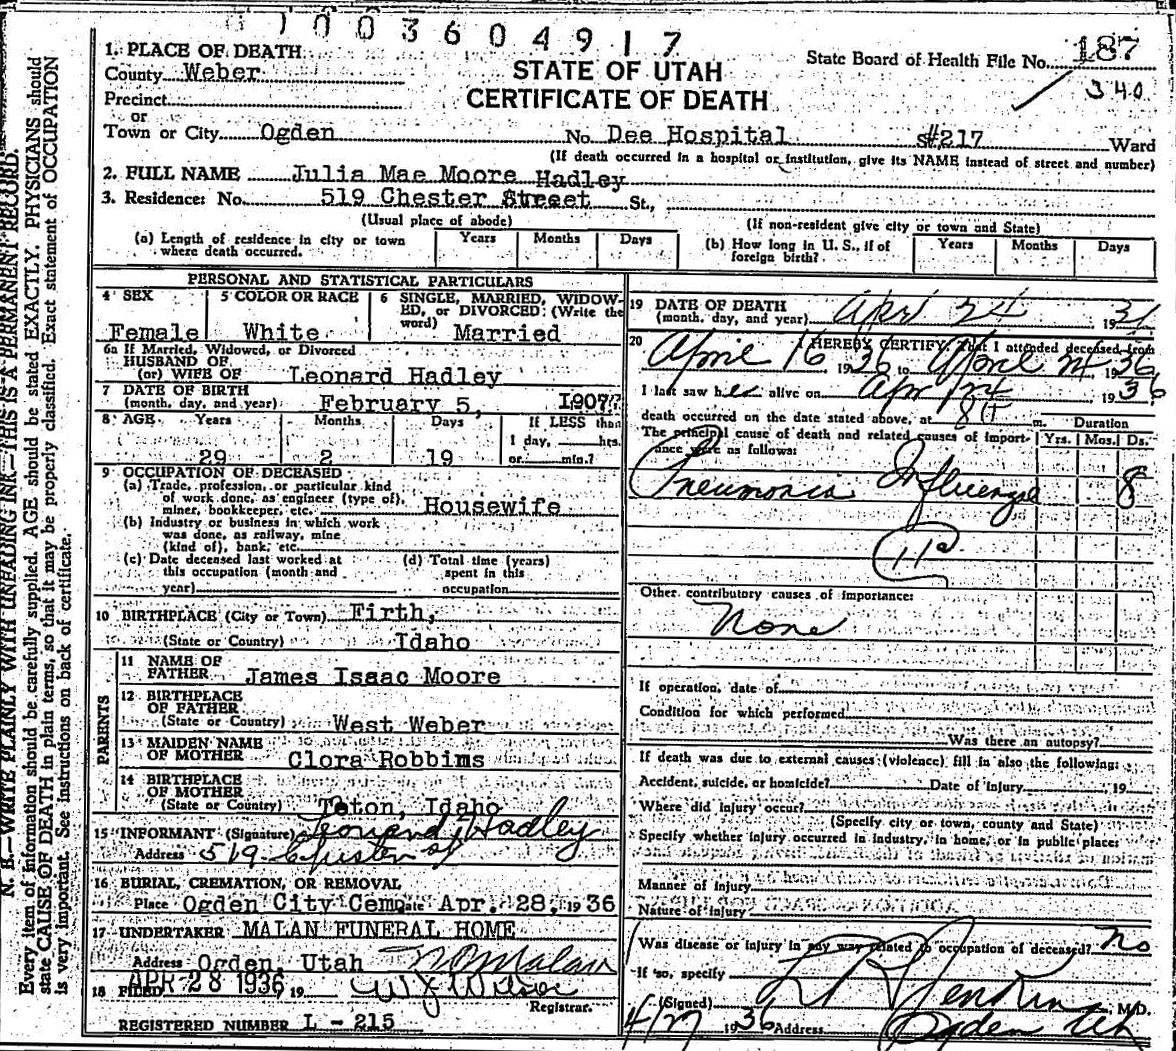 1003604917
1. PLACE OF DEATH
County Weber
Precinct
or
Town or City Ogden
STATE OF UTAH
CERTIFICATE OF DEATH
State Board of Health File No. 187
340
No. Dee Hospital #217 Ward
(If death occurred in a hospital or institution, give its NAME instead of street and number)
2. FULL NAME Julia Mae Moore Hadley
3. Residence: No. 519 Chester Street St.,
(Usual place of abode) (If non-resident give city or town and State)
(a) Length of residence in city or town where death occurred. Years Months Days
(b) How long in U. S., if of foreign birth? Years Months Days
PERSONAL AND STATISTICAL PARTICULARS
4 SEX Female
5 COLOR OR RACE White
6 SINGLE, MARRIED, WIDOWED, or DIVORCED: (Write the word) Married
6a If Married, Widowed, or Divorced
HUSBAND OF
(or) WIFE OF Leonard Hadley
7 DATE OF BIRTH
(month, day, and year) February 5, 1907
8 AGE Years Months Days If LESS than
1 day, hrs.
29 2 19 or min.?
9 OCCUPATION OF DECEASED
(a) Trade, profession, or particular kind
of work done, as engineer (type of),
miner, bookkeeper, etc. Housewife
(b) Industry or business in which work
was done, as railway, mine
(kind of), bank, etc.
(c) Date deceased last worked at
this occupation (month and
year)
(d) Total time (years)
spent in this
occupation
10 BIRTHPLACE (City or Town) Firth,
(State or Country) Idaho
PARENTS
11 NAME OF
FATHER James Isaac Moore
12 BIRTHPLACE
OF FATHER
(State or Country) West Weber
13 MAIDEN NAME
OF MOTHER Clora Robbims
14 BIRTHPLACE
OF MOTHER
(State or Country) Teton, Idaho
15 INFORMANT (Signature) Leonard Hadley
Address 519
16 BURIAL, CREMATION, OR REMOVAL
Place Ogden City Cem Date Apr. 28, 1936
17 UNDERTAKER MALAN FUNERAL HOME
Address Ogden, Utah Malan
18 FILED APR 28 1936, 19 W J Wilson
Registrar.
REGISTERED NUMBER L - 215
19 DATE OF DEATH
(month, day, and year) Apr 24 193
20 I HEREBY CERTIFY, That I attended deceased from
April 16 1936 to April 24, 1936
I last saw her alive on Apr 24 1936
death occurred on the date stated above, at 8 m. Duration
The principal cause of death and related causes of importance were as follows: Yrs. Mos. Ds.
Pneumonia Influenzal 8
Other contributory causes of importance:
None
If operation, date of
Condition for which performed
Was there an autopsy?
If death was due to external causes (violence) fill in also the following:
Accident, suicide, or homicide? Date of Injury , 19
Where did injury occur?
(Specify city or town, county and State)
Specify whether injury occurred in industry, in home, or in public place:
Manner of Injury
Nature of Injury
Was disease or injury in any way related to occupation of deceased? No
If so, specify
(Signed) Jenkins, M.D.
4/27 1936 Address Ogden Utah
N. B.—WRITE PLAINLY WITH UNFADING INK—THIS IS A PERMANENT RECORD.
Every item of information should be carefully supplied. AGE should be stated EXACTLY. PHYSICIANS should
state CAUSE OF DEATH in plain terms, so that it may be properly classified. Exact statement of OCCUPATION
is very important. See instructions on back of certificate.